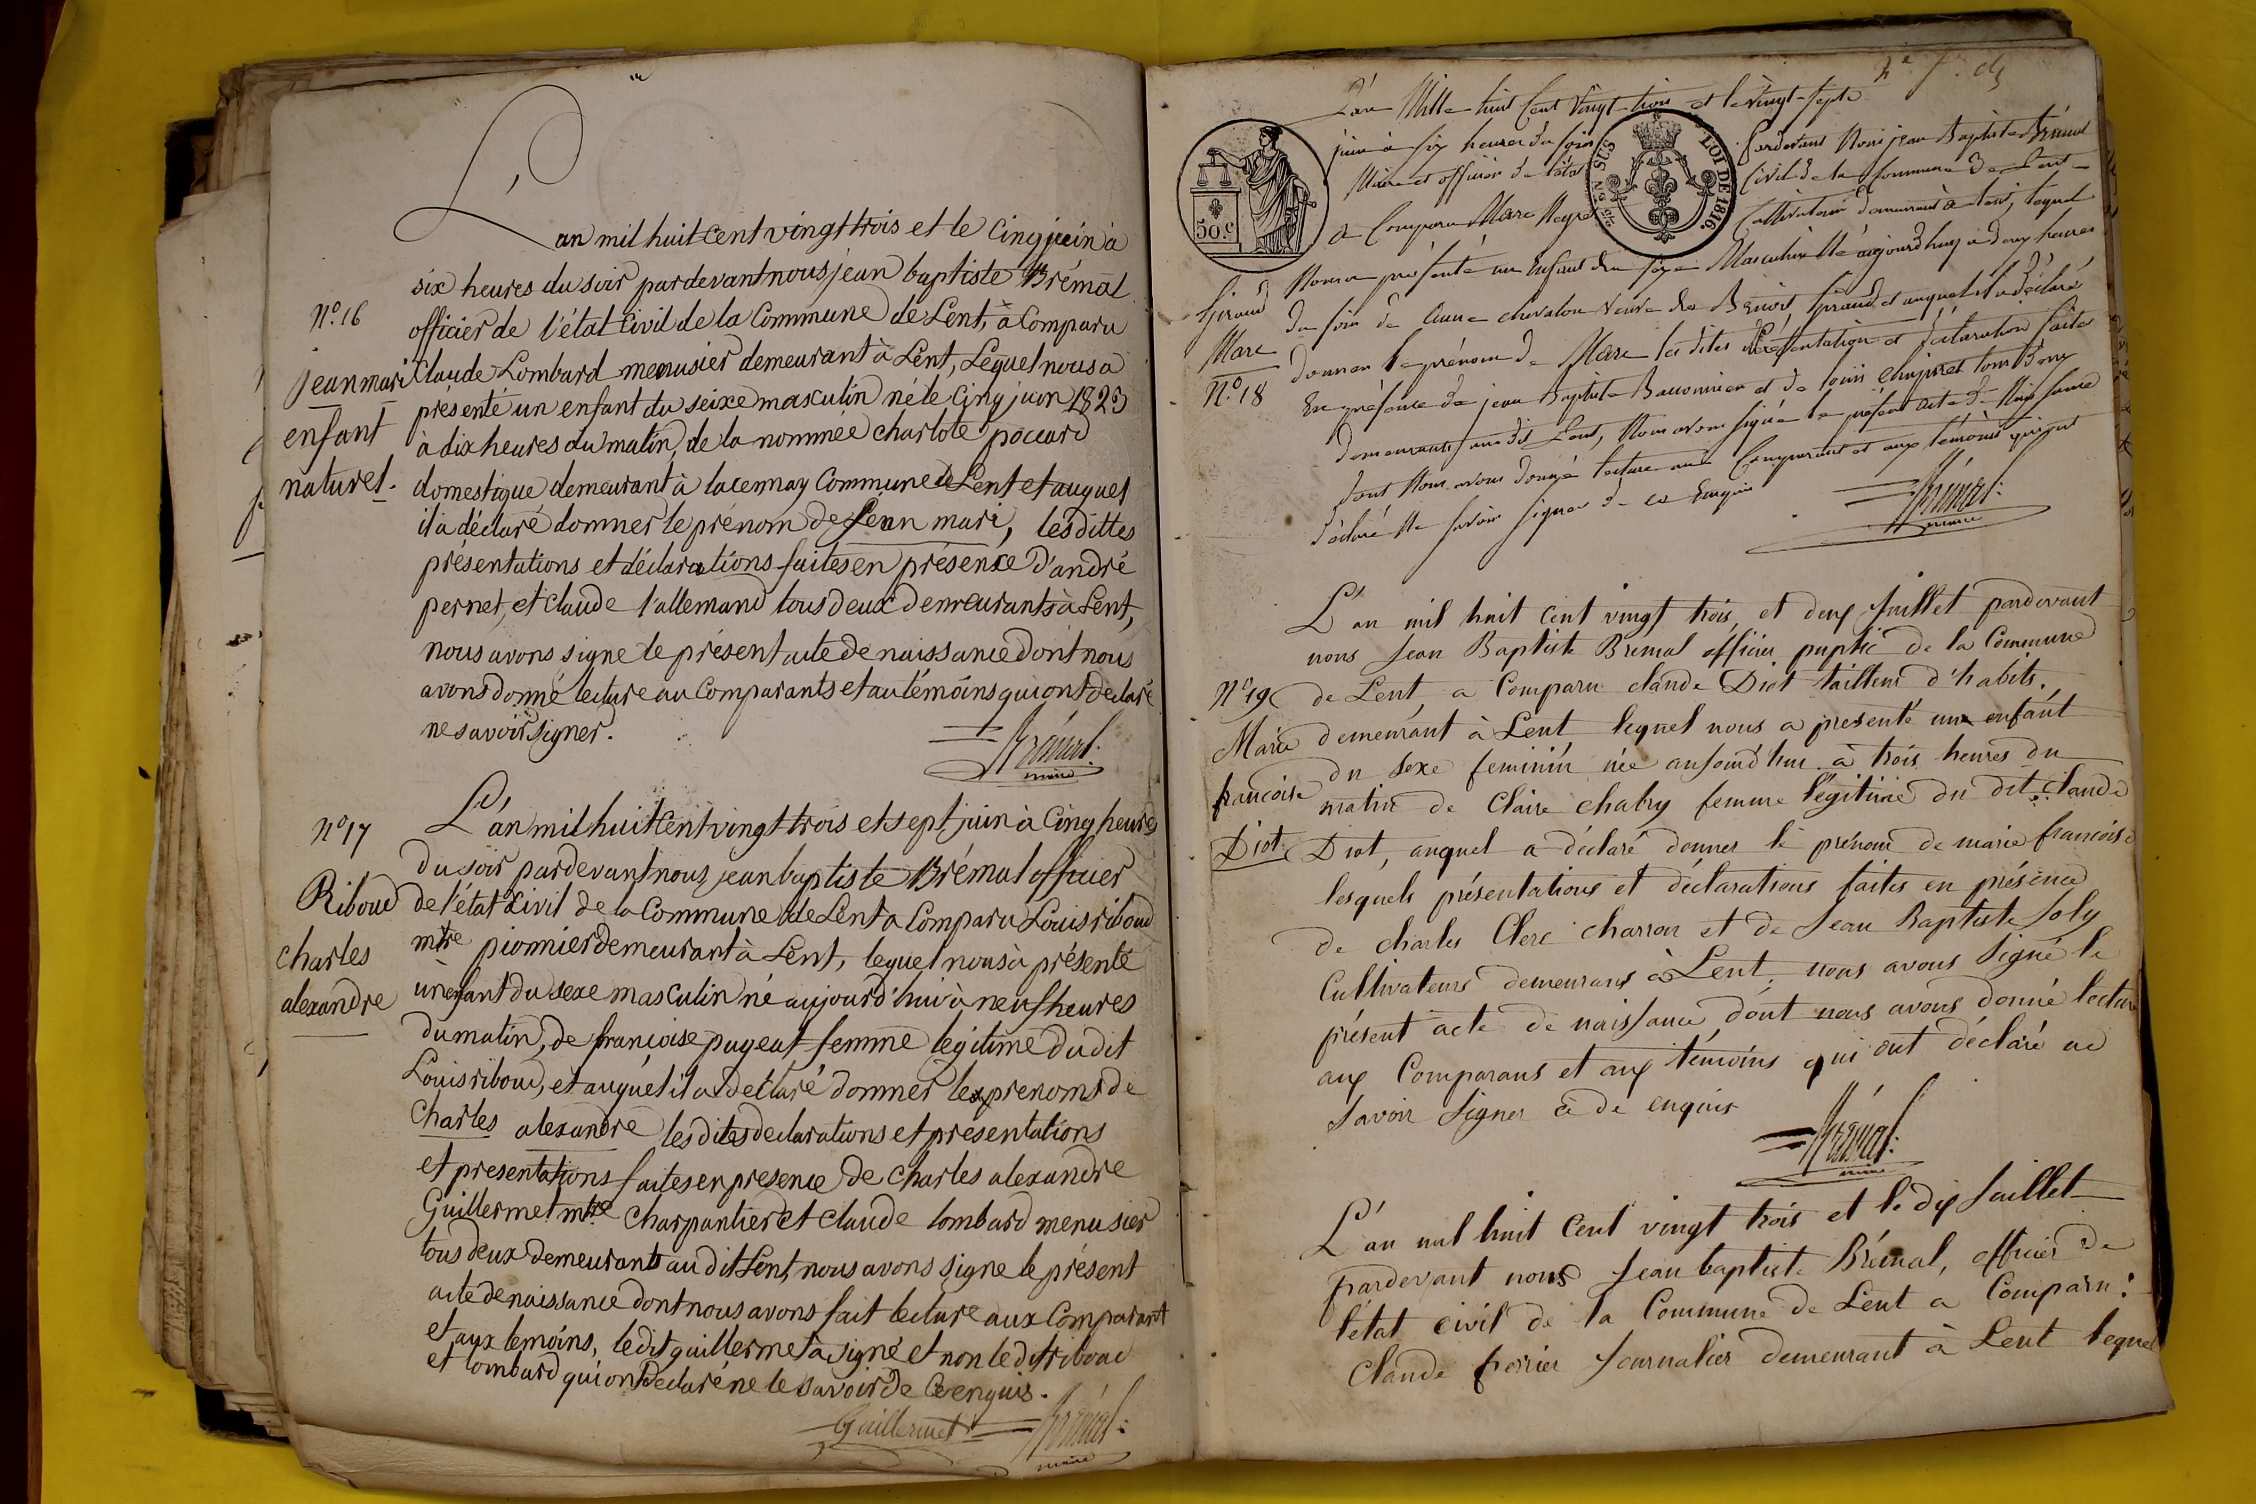 L'an mil huit cent vingt trois et le cinq juin à
six heures du soir pardevant nous jean baptiste Brémal
N.° 16
officier de l'état Civil de la Commune de Lent, à Comparu
jean mari
Claude Lombard menusier demeurant à Lent, Lequel nous a
presente un enfant du seixe masculin né le Cinq juin 1823
enfant
à dix heures du matin, de la nommée charlote poccard
naturel.
domestique demeurant à lacennay Commune de Lent et auquel
il à déclaré donner le prénom de Jean mari, lesdittes
présentations et déclarations faites en présence d'andré
pernet, et claude l'allemand tous deux demeurants à Lent,
nous avons signe le présent acte de naissance dont nous
avons donné lecture au Comparants et au témoins qui ont declaré
ne savoir signer.
Brémal
maire
N° 17
L'an mil huit cent vingt trois et sept juin à Cinq heures
du soir pardevant nous jean baptiste Brémal officier
Riboud
de l'état Civil de la Commune de Lent a Comparu Louis riboud
mtre pionnier demeurant à Lent, lequel nous à présenté
charles
un enfant du sexe masculin né aujourd'hui à neuf heures
alexandre
du matin, de françoise pugeat femme légitime dudit
Louis riboud, et auquel il a declaré donner les prenoms de
Charles alexandre les dites declarations et présentations
et presentations faites en presence de charles alexandre
Guillermet mtre Charpantier et claude lombard menusier
tous deux demeurants au dit Lent, nous avons signe le présent
acte de naissance dont nous avons fait lecture aux Comparant
et aux temoins, ledit guillermet à signé et non ledit riboud
et lombard qui ont declaré ne le savoir de Ce enquis.
Guillermet Brémal
maire
L'an Mille huit Cent Vingt-trois et le vingt-sept
juin à six heures du soir Pardevant Nous jean Baptiste Brémal
Maire et officier de l'état Civil de la Commune de Lent
a Comparu Marc Cultivateur demeurant à lent, lequel
50.C
LOI DE 1816.
Nous a présenté un Enfant du sexe Masculin Né aujourdhuy à deux heures
Giraud
du soir de Anne chevalon veuve de Benoit Giraud et auquel il a déclaré
Marc
donner le prénom de Marc les dites présentation et déclaration faites
N.° 18
En présence de jean Baptiste et de louis tous Deux
demeurants au dit Lent, Nous avons signé le présent acte de Naissance
dont Nous avons donné lecture aux Comparant et aux témoins qui ont
déclaré Ne savoir signer de ce Enquis
Brémal
maire
L'an mil huit cent vingt trois, et deux Juillet pardevant
nous Jean Baptiste Bremal officier puplic de la Commune
N° 19
de Lent, a Comparu claude Diot tailleur d'habits.
Marie
demeurant à Lent lequel nous a presenté un enfant
françoise
du sexe feminin née aujourd'hui à trois heures du
matin de Claire chabry femme légitime du dit claude
Diot
Diot, auquel a déclaré donner le prénom de marie françoise
lesquels présentations et déclarations faites en présence
de charles Clerc charron et de Jean Baptiste Joly
Cultivateurs demeurans à Lent; nous avons signé le
présent acte de naissance, dont nous avons donné lecture
aux Comparans et aux témoins qui ont déclaré ne
savoir signer à de enquis
Brémal
maire
L'an mil huit Cent vingt trois et le dix Juillet
pardevant nous Jean baptiste Brémal, officier de
l'état civil de la Commune de Lent a Comparu:
Claude perrier Journalier demeurant à Lent lequel